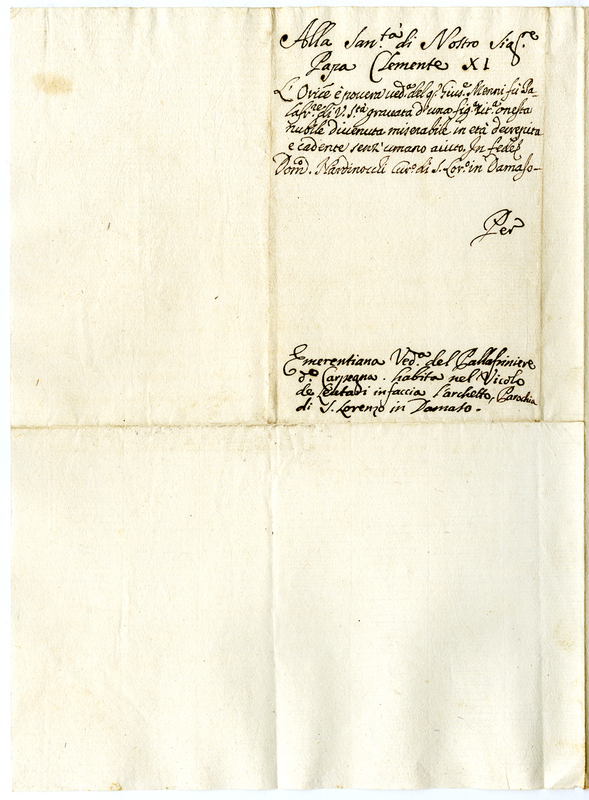 Alla San.tà di Nostro Sig.re
Papa Clemente XI
L'Orice è povera ved.a del q. Gius.e Menni fù Pa-
lafr.re di V. S.tà gravata d'una fig.a zit.a onesta
nubile divenuta miserabile in età decrepita
e cadente senz'umano aiuto. In fede
Dom.o Nardinocchi Cur.o di S. Lor.o in Damaso-
Per
Emerentiana Ved.a del Pallafriniere
d.o Carpegna. habita nel Vicolo
de Leutari in faccia l'archetto, Parochia
di S. Lorenzo in Damaso.